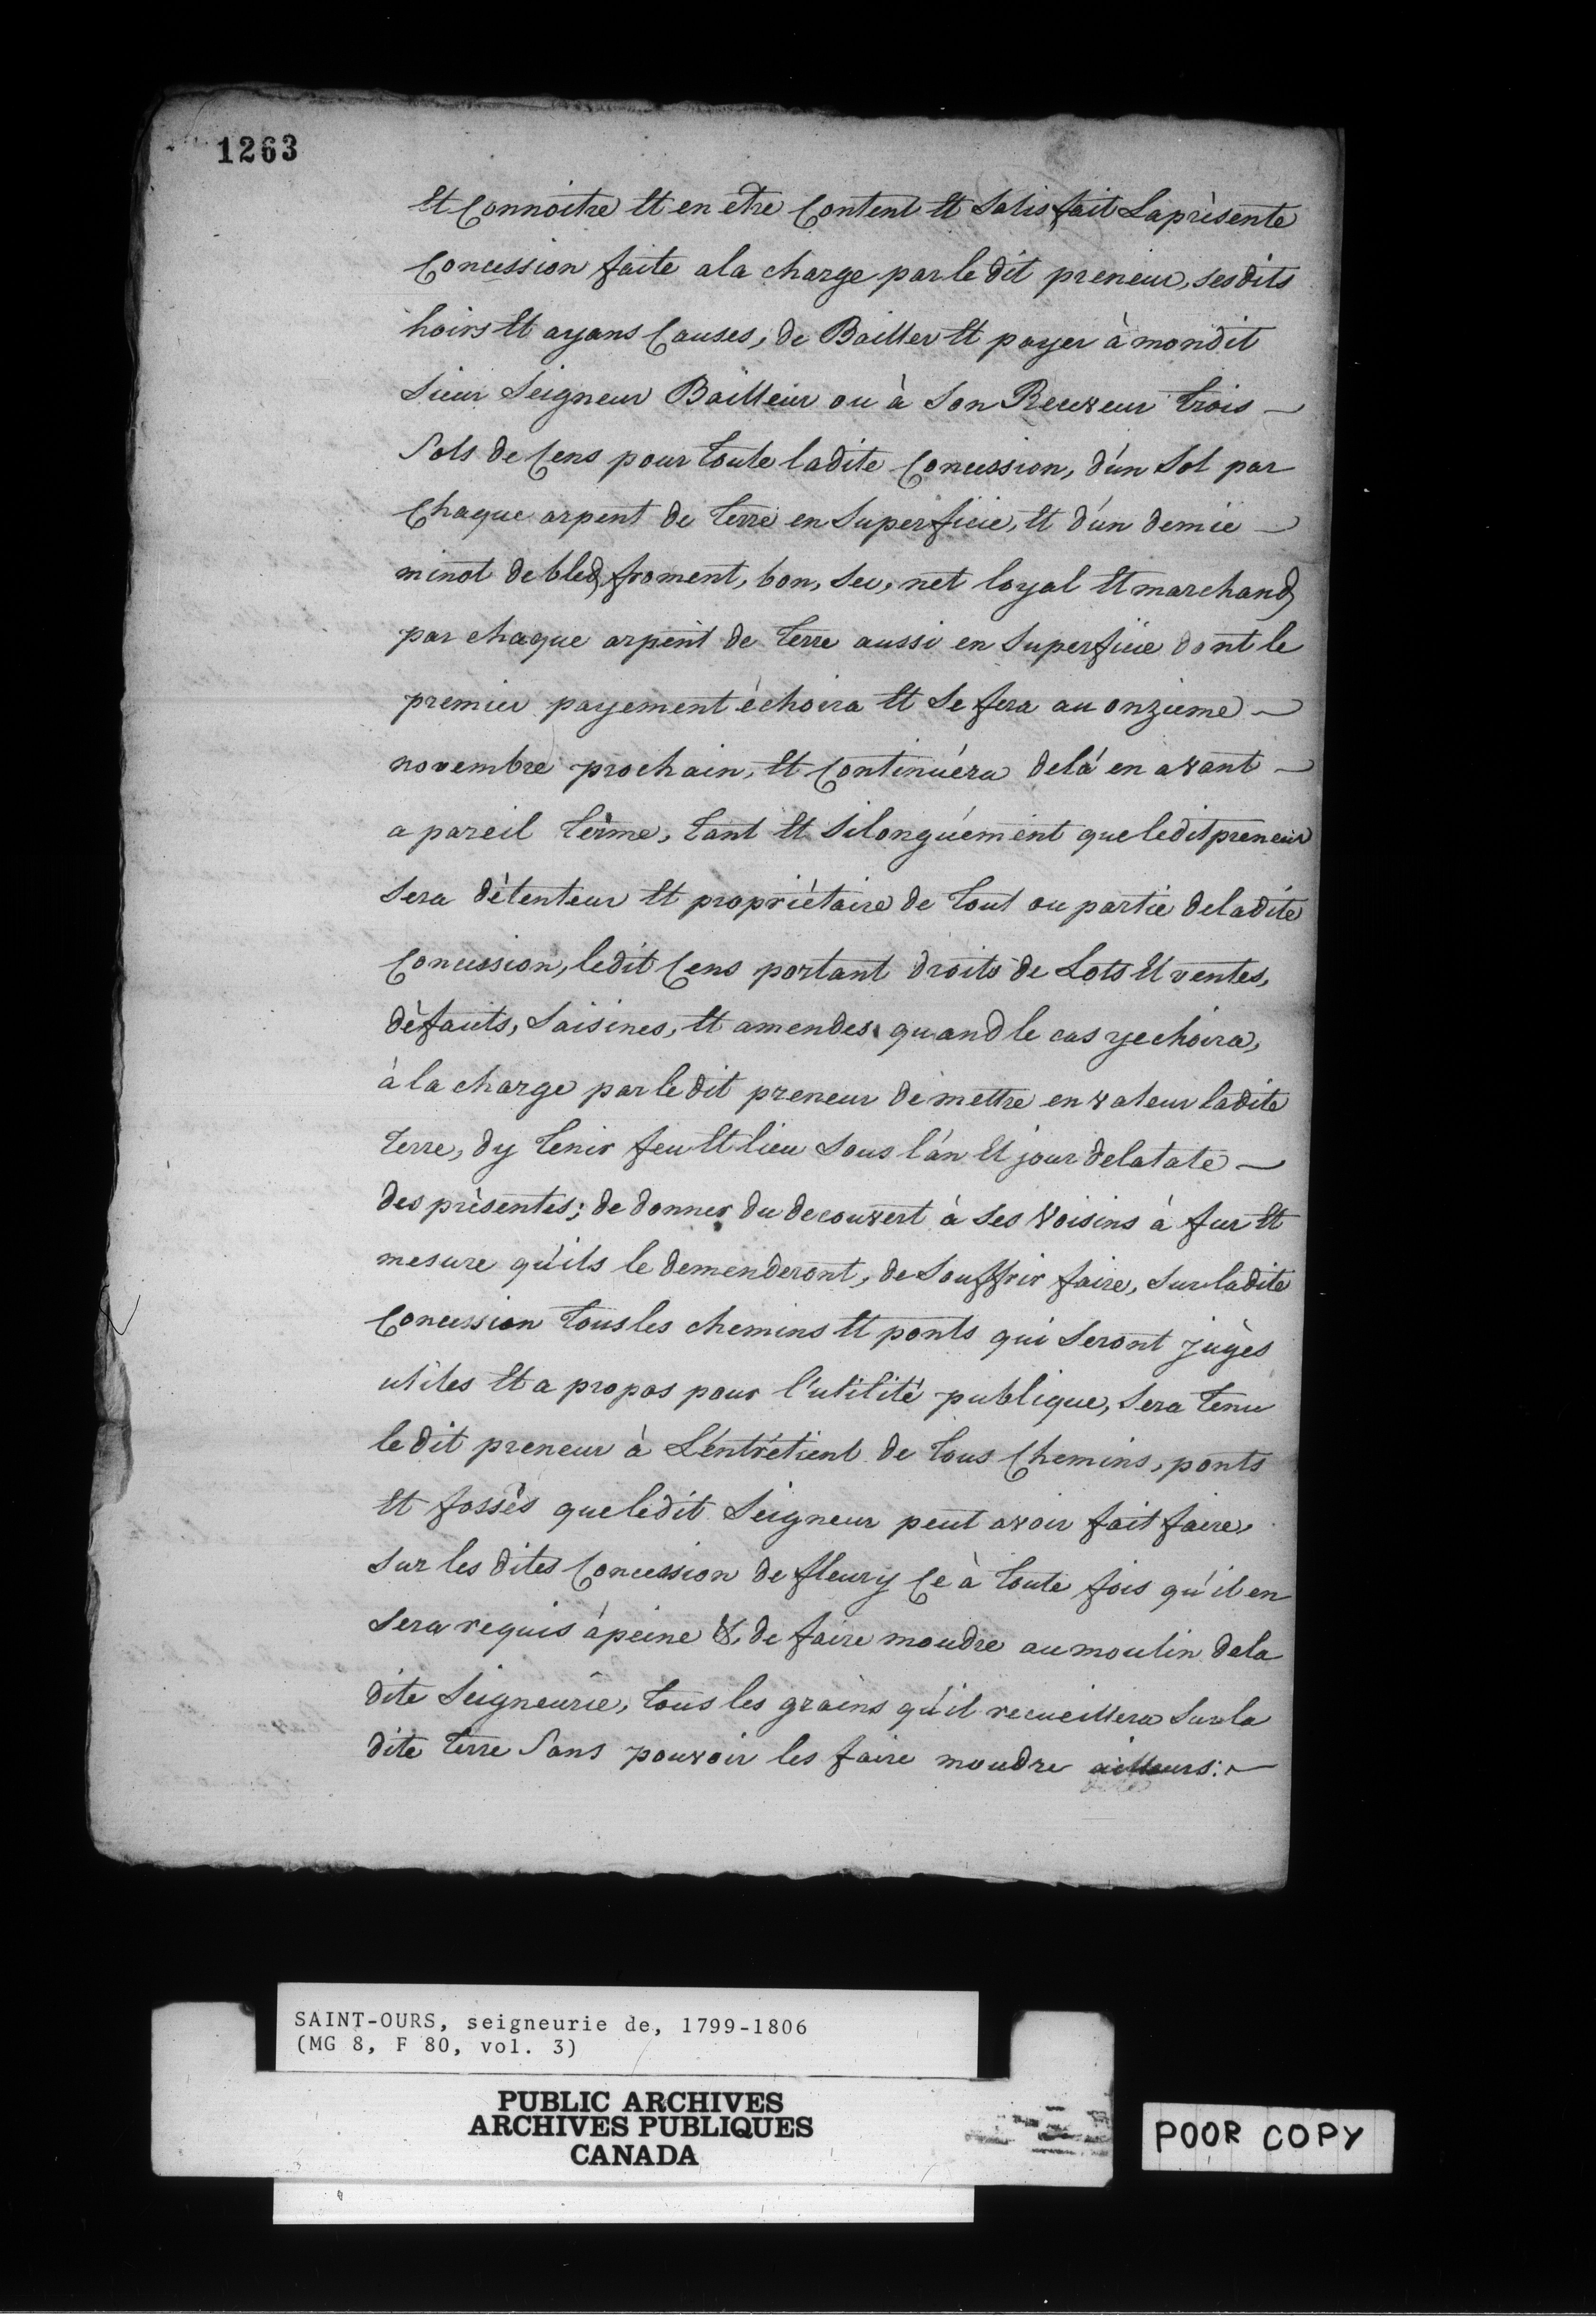 1263
Et Connoitre Et en etre Content Et Satisfait La présente
Concession faite a la charge par le dit preneur, ses dits
hoirs Et ayans Causes, de Bailler Et payer à mondit
Sieur Seigneur Bailleur ou à Son Receveur trois
Sols de Cens pour toute ladite Concession, d'un Sol par
Chaque arpent de terre en Superficie, Et d'un demie
minot de bled froment, bon, sec, net loyal Et marchand
par chaque arpent de terre aussi en Superficie dont le
premier payement échoira Et Se fera au onzieme
novembre prochain, Et Continuera delà en avant
a pareil terme, tant Et Si longuement que ledit preneur
Sera détenteur Et propriétaire de tout ou partie de ladite
Concession, ledit Cens portant droits de Lots Et ventes,
défauts, Saisines, Et amendes quand le cas y echoira,
à la charge par le dit preneur de mettre en valeur ladite
terre, dy tenir feu Et lieu Sous l'an Et jour de la tate
des présentes; de donner du decouvert à Ses Voisins à fur Et
mesure qu'ils le demenderont, de Souffrir faire, Sur ladite
Concession tous les chemins Et ponts qui Seront jugés
utiles Et a propos pour l'utilité publique, Sera tenu
le dit preneur à L'entrétient de tous Chemins, ponts
Et fossés que ledit Seigneur peut avoir fait faire,
Sur les dites Concession de fleury Ce à toute fois qu'il en
Sera requis à peine &. de faire moudre au moulin de la
dite Seigneurie, tous les grains qu'il recueillera Sur la
dite terre Sans pouvoir les faire moudre ailleurs:
SAINT-OURS, seigneurie de, 1799-1806
(MG 8, F 80, vol. 3)
PUBLIC ARCHIVES
ARCHIVES PUBLIQUES
CANADA
POOR COPY